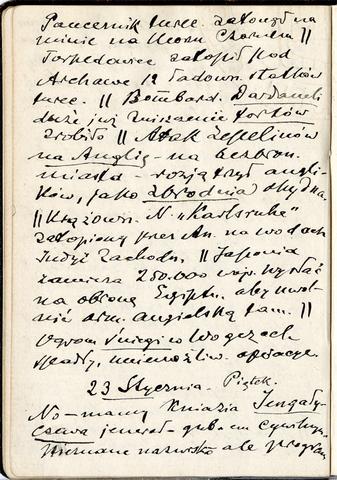 Pancernik turec. zatonął na
minie na Morzu Czarnem ||
Torpedowiec zatopił pod
Archawe 12 ładown. statków
turec. || Bombard. Dardaneli
duże już zniszczenie fortów
zrobiło || Atak Zepelinów
na Anglię - na bezbron.
miasta - rozjątrzył angli-
ków, jako zbrodnia ohydna.
|| Krążown. N. "Karlsruhe"
zatopiony przez An. na wodach
Indyj Zachodn. || Japonia
zamierza 250.000 wojs. wysłać
na obronę Egiptu. aby uwol-
nić arm. angielską tam. ||
Ogrom. śniegi w Wogezach
spadły, uniemożliw. operacje.
23 Stycznia. Piątek.
No - mamy Kniazia Jengały-
czewa jenerał-gub. em
nieznane nazwisko ale program